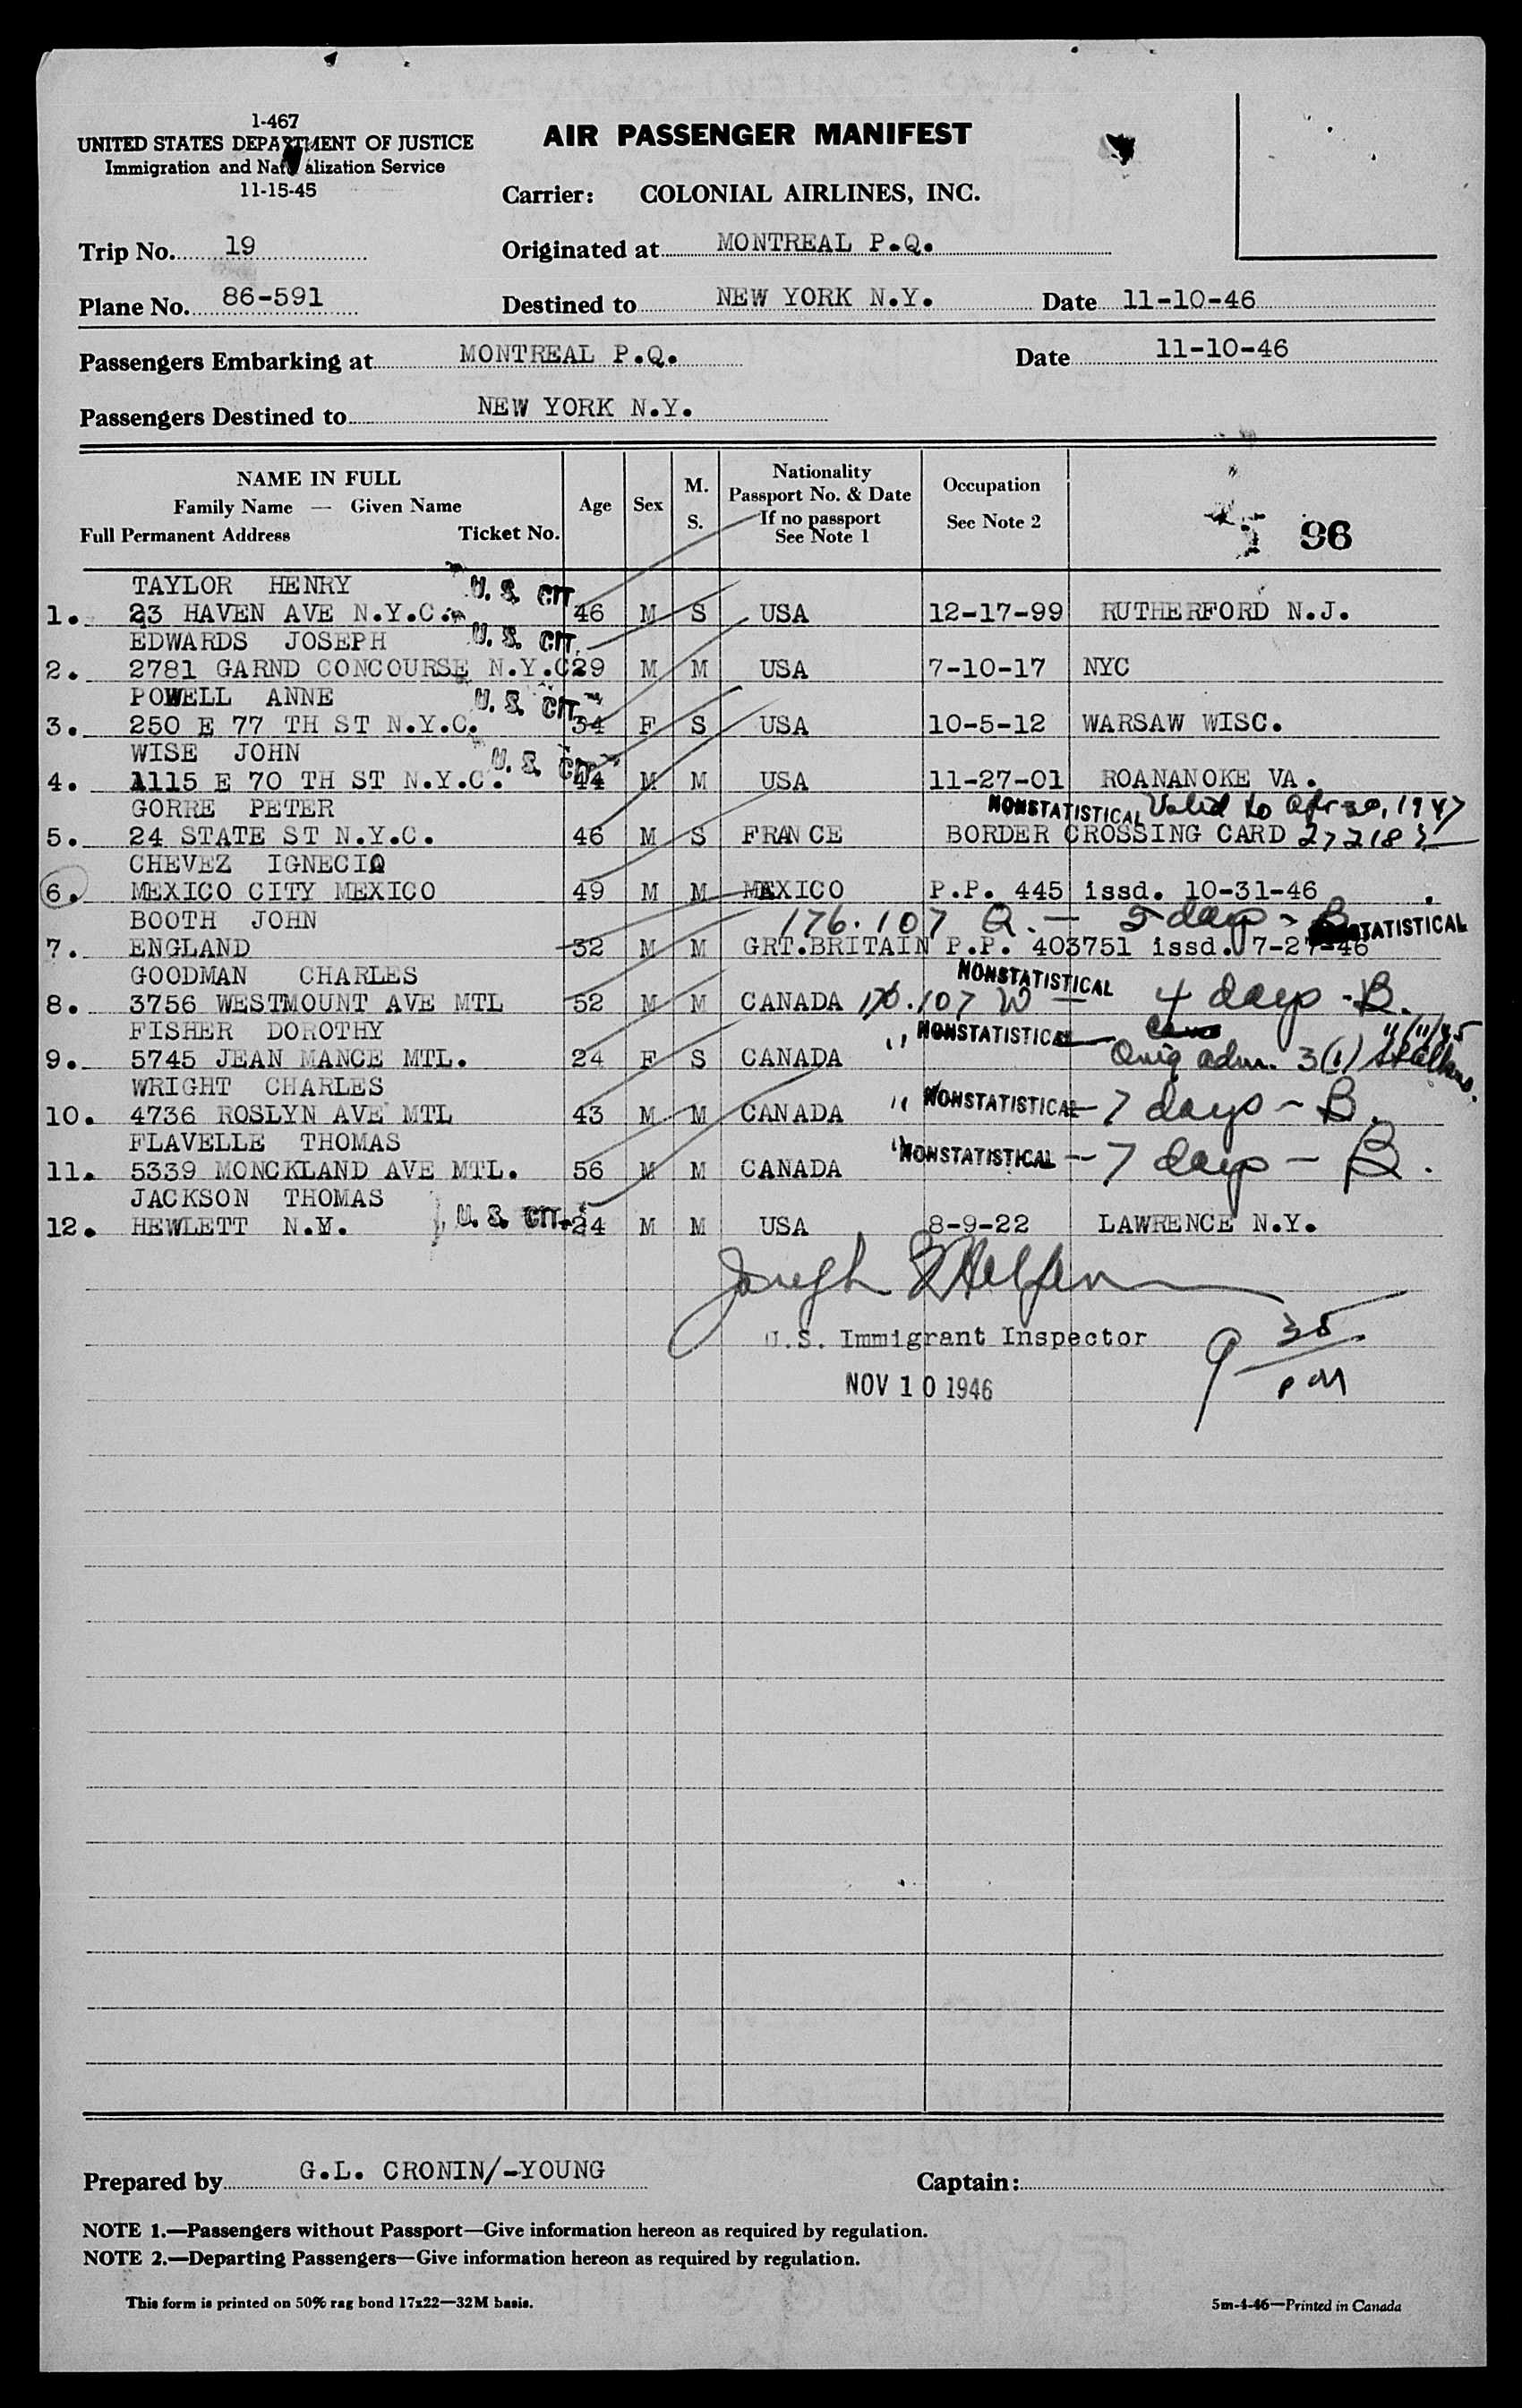 1-467
UNITED STATES DEPARTMENT OF JUSTICE
Immigration and Naturalization Service
11-15-45
AIR PASSENGER MANIFEST
Carrier: COLONIAL AIRLINES, INC.
Trip No. 19 Originated at MONTREAL P.Q.
Plane No. 86-591 Destined to NEW YORK N.Y. Date 11-10-46
Passengers Embarking at MONTREAL P.Q. Date 11-10-46
Passengers Destined to NEW YORK N.Y.
NAME IN FULL
Family Name — Given Name
Full Permanent Address Ticket No.
Age
Sex
M.
S.
Nationality
Passport No. & Date
If no passport
See Note 1
Occupation
See Note 2
96
TAYLOR HENRY U. S. CIT
1. 23 HAVEN AVE N.Y.C. 46 M S USA 12-17-99 RUTHERFORD N.J.
EDWARDS JOSEPH U. S. CIT.
2. 2781 GARND CONCOURSE N.Y.C 29 M M USA 7-10-17 NYC
POWELL ANNE U. S. CIT
3. 250 E 77 TH ST N.Y.C. 34 F S USA 10-5-12 WARSAW WISC.
WISE JOHN U. S. CIT
4. 1115 E 70 TH ST N.Y.C. 44 M M USA 11-27-01 ROANANOKE VA.
GORRE PETER NONSTATISTICAL Valid to Apr 30, 1947
5. 24 STATE ST N.Y.C. 46 M S FRANCE BORDER CROSSING CARD 272183
CHEVEZ IGNECIO
6. MEXICO CITY MEXICO 49 M M MEXICO P.P. 445 issd. 10-31-46
BOOTH JOHN 176.107 Q. — 5 days - B STATISTICAL
7. ENGLAND 32 M M GRT.BRITAIN P.P. 403751 issd. 7-27-46
GOODMAN CHARLES NONSTATISTICAL
8. 3756 WESTMOUNT AVE MTL 52 M M CANADA 176.107 W — 4 days - B.
FISHER DOROTHY " NONSTATISTICAL 11/11/45
9. 5745 JEAN MANCE MTL. 24 F S CANADA Orig adm. 3(1) St Albans.
WRIGHT CHARLES
10. 4736 ROSLYN AVE MTL 43 M M CANADA " NONSTATISTICAL — 7 days - B.
FLAVELLE THOMAS
11. 5339 MONCKLAND AVE MTL. 56 M M CANADA " NONSTATISTICAL — 7 days - B.
JACKSON THOMAS U. S. CIT.
12. HEWLETT N.Y. 24 M M USA 8-9-22 LAWRENCE N.Y.
Joseph
U.S. Immigrant Inspector
9 35 PM
NOV 10 1946
Prepared by G.L. CRONIN/-YOUNG Captain:
NOTE 1.—Passengers without Passport—Give information hereon as required by regulation.
NOTE 2.—Departing Passengers—Give information hereon as required by regulation.
This form is printed on 50% rag bond 17x22—32M basis. 5m-4-46—Printed in Canada